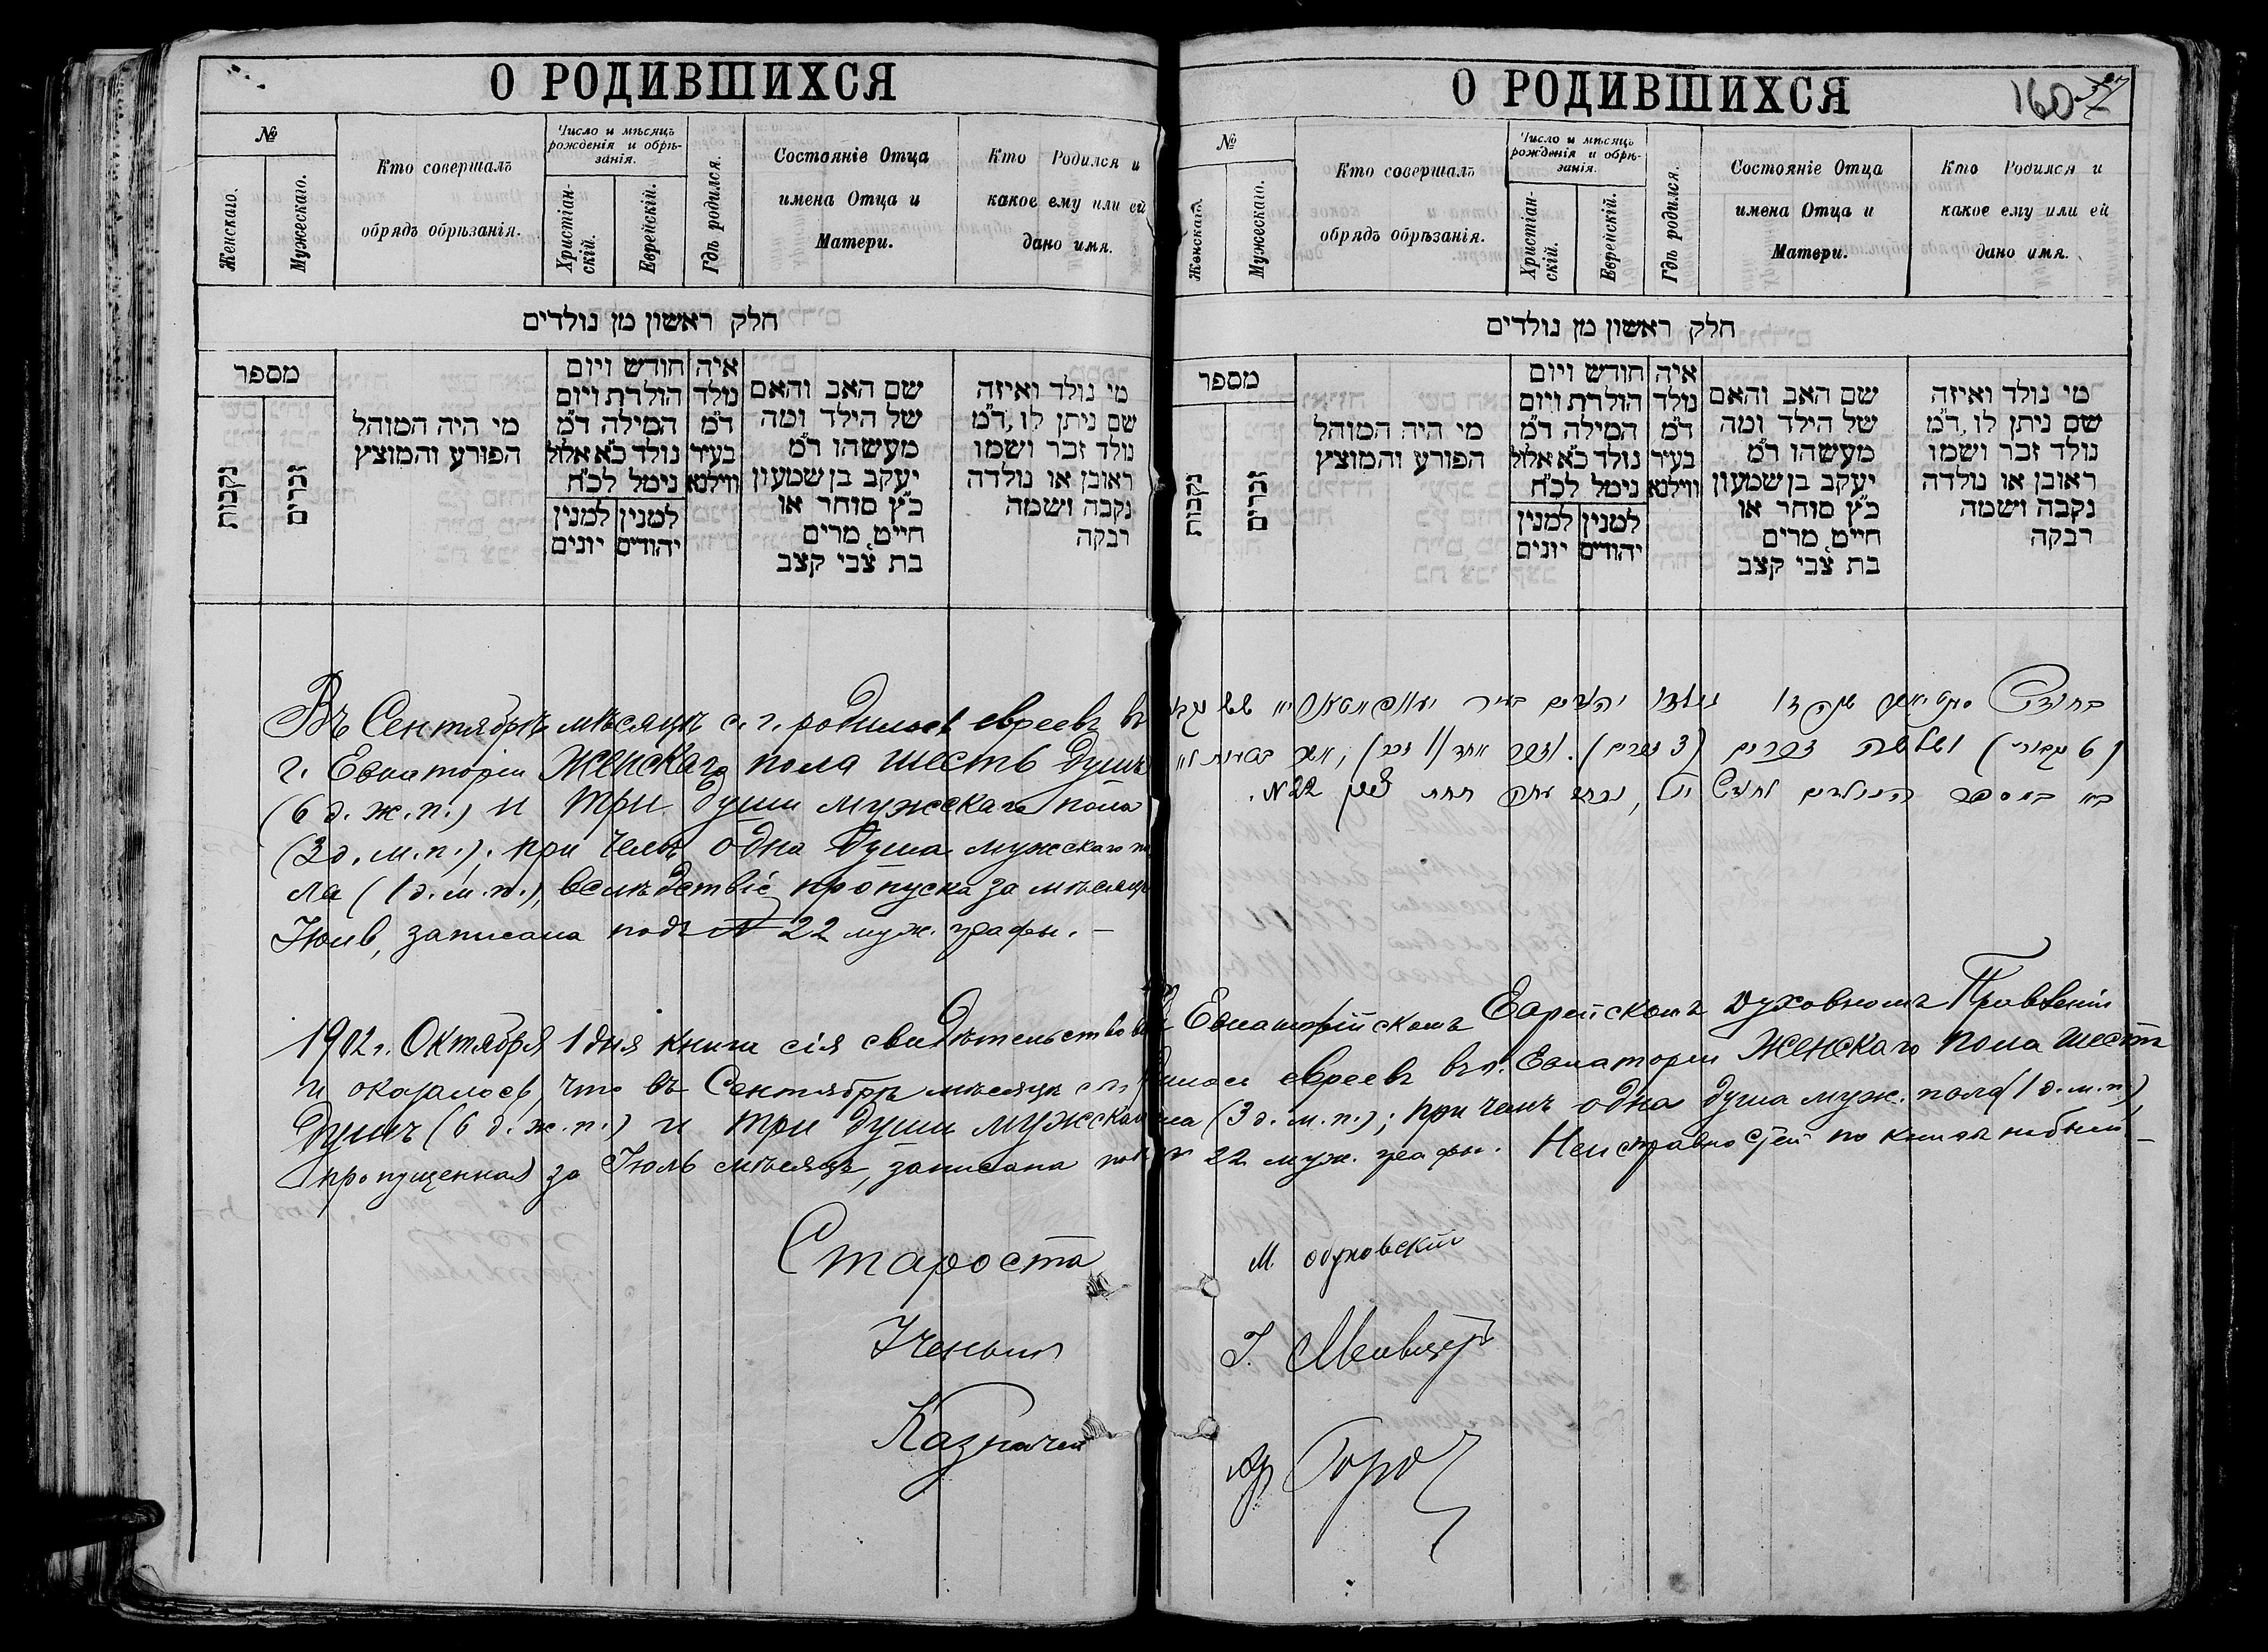 О РОДИВШИХСЯ
№
Женскаго.
Мужескаго.
Кто совершалъ
обрядъ обрѣзанія.
Число и мѣсяцъ
рожденія и обрѣ-
занія.
Христіан-
скій.
Еврейскій.
Гдѣ родился.
Состояніе Отца
имена Отца и
Матери.
Кто Родился и
какое ему или ей
дано имя.
חלק ראשון מן נולדים
מספר
נקבות
זכרים
מי היה המוהל
הפורע והמוצץ
חודש ויום
הולדת ויום
המילה ד״מ
נולד כ״א אלול
נימל לכ״ח
למנין יהודים
למנין יונים
איה
נולד
ד״מ
בעיר
ווילנא
שם האב והאם
של הילד ומה
מעשהו ד״מ
יעקב בן שמעון
כ״ץ סוחר או
חייט, מרים
בת צבי קצב
מי נולד ואיזה
שם ניתן לו, ד״מ
נולד זכר ושמו
ראובן או נולדה
נקבה ושמה
רבקה
Въ Сентябрѣ мѣсяцѣ с. г. родилось евреевъ въ
г. Евпаторіи Женскаго пола шесть душъ
(6 д. ж. п.) и три души мужскаго пола
(3 д. м. п.); при чемъ одна душа мужскаго по
ла (1 д. м. п.), вслѣдствіе пропуска за мѣсяцъ
Іюль, записана подъ № 22 муж. графы. —
О РОДИВШИХСЯ
160
№
Женскаго.
Мужескаго.
Кто совершалъ
обрядъ обрѣзанія.
Число и мѣсяцъ
рожденія и обрѣ-
занія.
Христіан-
скій.
Еврейскій.
Гдѣ родился.
Состояніе Отца
имена Отца и
Матери.
Кто Родился и
какое ему или ей
дано имя.
חלק ראשון מן נולדים
מספר
נקבות
זכרים
מי היה המוהל
הפורע והמוצץ
חודש ויום
הולדת ויום
המילה ד״מ
נולד כ״א אלול
נימל לכ״ח
למנין יהודים
למנין יונים
איה
נולד
ד״מ
בעיר
ווילנא
שם האב והאם
של הילד ומה
מעשהו ד״מ
יעקב בן שמעון
כ״ץ סוחר או
חייט, מרים
בת צבי קצב
מי נולד ואיזה
שם ניתן לו, ד״מ
נולד זכר ושמו
ראובן או נולדה
נקבה ושמה
רבקה
בחודש נולדו יהודים בעיר שש
(6 ) ושלשה זכרים (3 זכרים). וזכר אחד (1 זכר), אשר
במספר הנולדים לחודש יולי, תחת №22.
1902 г. Октября 1 дня книга сія свидѣтельствована Евпаторійскомъ Еврейскомъ Духовномъ Правленіи
и оказалось, что въ Сентябрѣ мѣсяцѣ с. г. родилось евреевъ въ г. Евпаторіи Женскаго пола шесть
душъ (6 д. ж. п.) и три души мужскаго пола (3 д. м. п.); при чемъ одна душа муж. пола (1 д. м. п.),
пропущенная за Іюль мѣсяцъ, записана подъ № 22 муж. графы. Неисправностей по книгѣ небыло —
Староста
Ученый
Казначей